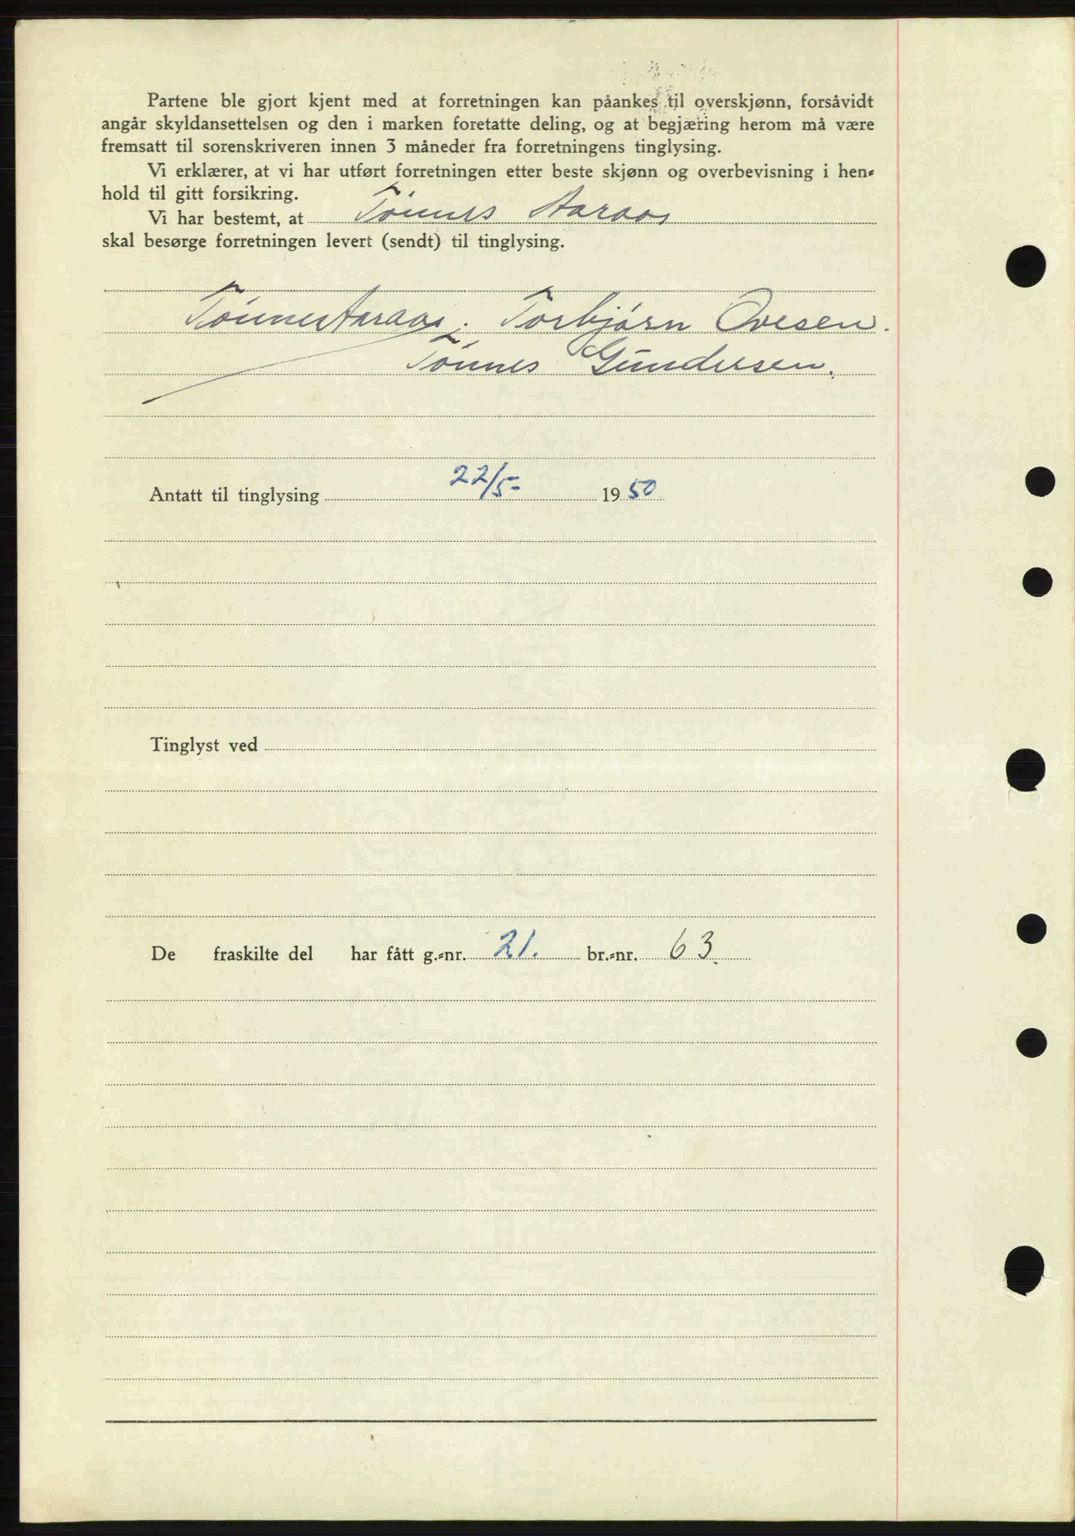 Partene ble gjort kjent med at forretningen kan påankes til overskjønn, forsåvidt
angår skyldansettelsen og den i marken foretatte deling, og at begjæring herom må være
fremsatt til sorenskriveren innen 3 måneder fra forretningens tinglysing.
Vi erklærer, at vi har utført forretningen etter beste skjønn og overbevisning i hen-
hold til gitt forsikring.
Vi har bestemt, at Tønnes Aaraas
skal besørge forretningen levert (sendt) til tinglysing.
Tønnes Aaraas. Torbjørn Ovesen.
Tønnes Gundersen.
Antatt til tinglysing 22/5- 1950
Tinglyst ved
De fraskilte del har fått g.-nr. 21. br.-nr. 63.